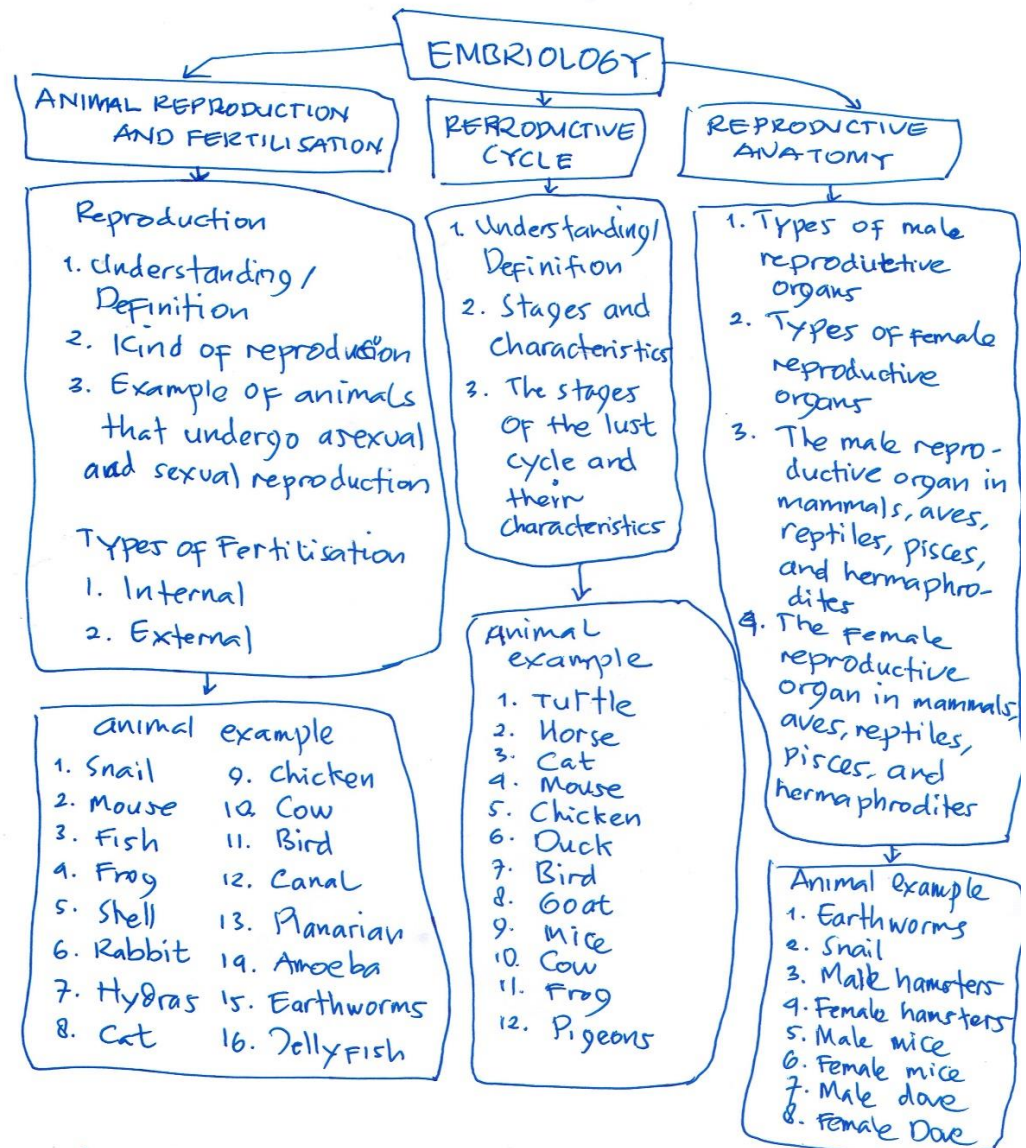 EMBRIOLOGY
ANIMAL REPRODUCTION
AND FERTILISATION
REPRODUCTIVE
CYCLE
REPRODUCTIVE
ANATOMY
Reproduction
1. Understanding/
Definition
2. Kind of reproduction
3. Example of animals
that undergo asexual
and sexual reproduction
Types of Fertilisation
1. Internal
2. External
animal example
1. Snail
2. Mouse
3. Fish
4. Frog
5. Shell
6. Rabbit
7. Hydras
8. Cat
9. Chicken
10. Cow
11. Bird
12. Canal
13. Planarian
14. Amoeba
15. Earthworms
16. Jellyfish
1. Understanding/
Definition
2. Stages and
characteristics
3. The stages
of the lust
cycle and
their
characteristics
Animal
example
1. Turtle
2. Horse
3. Cat
4. Mouse
5. Chicken
6. Duck
7. Bird
8. Goat
9. Mice
10. Cow
11. Frog
12. Pigeons
1. Types of male
reproductive
organs
2. Types of female
reproductive
organs
3. The male repro-
ductive organ in
mammals, aves,
reptiles, pisces,
and hermaphro-
dites
4. The Female
reproductive
organ in mammals,
aves, reptiles,
pisces, and
hermaphrodites
Animal example
1. Earthworms
2. Snail
3. Male hamsters
4. Female hamsters
5. Male mice
6. Female mice
7. Male dove
8. Female Dove